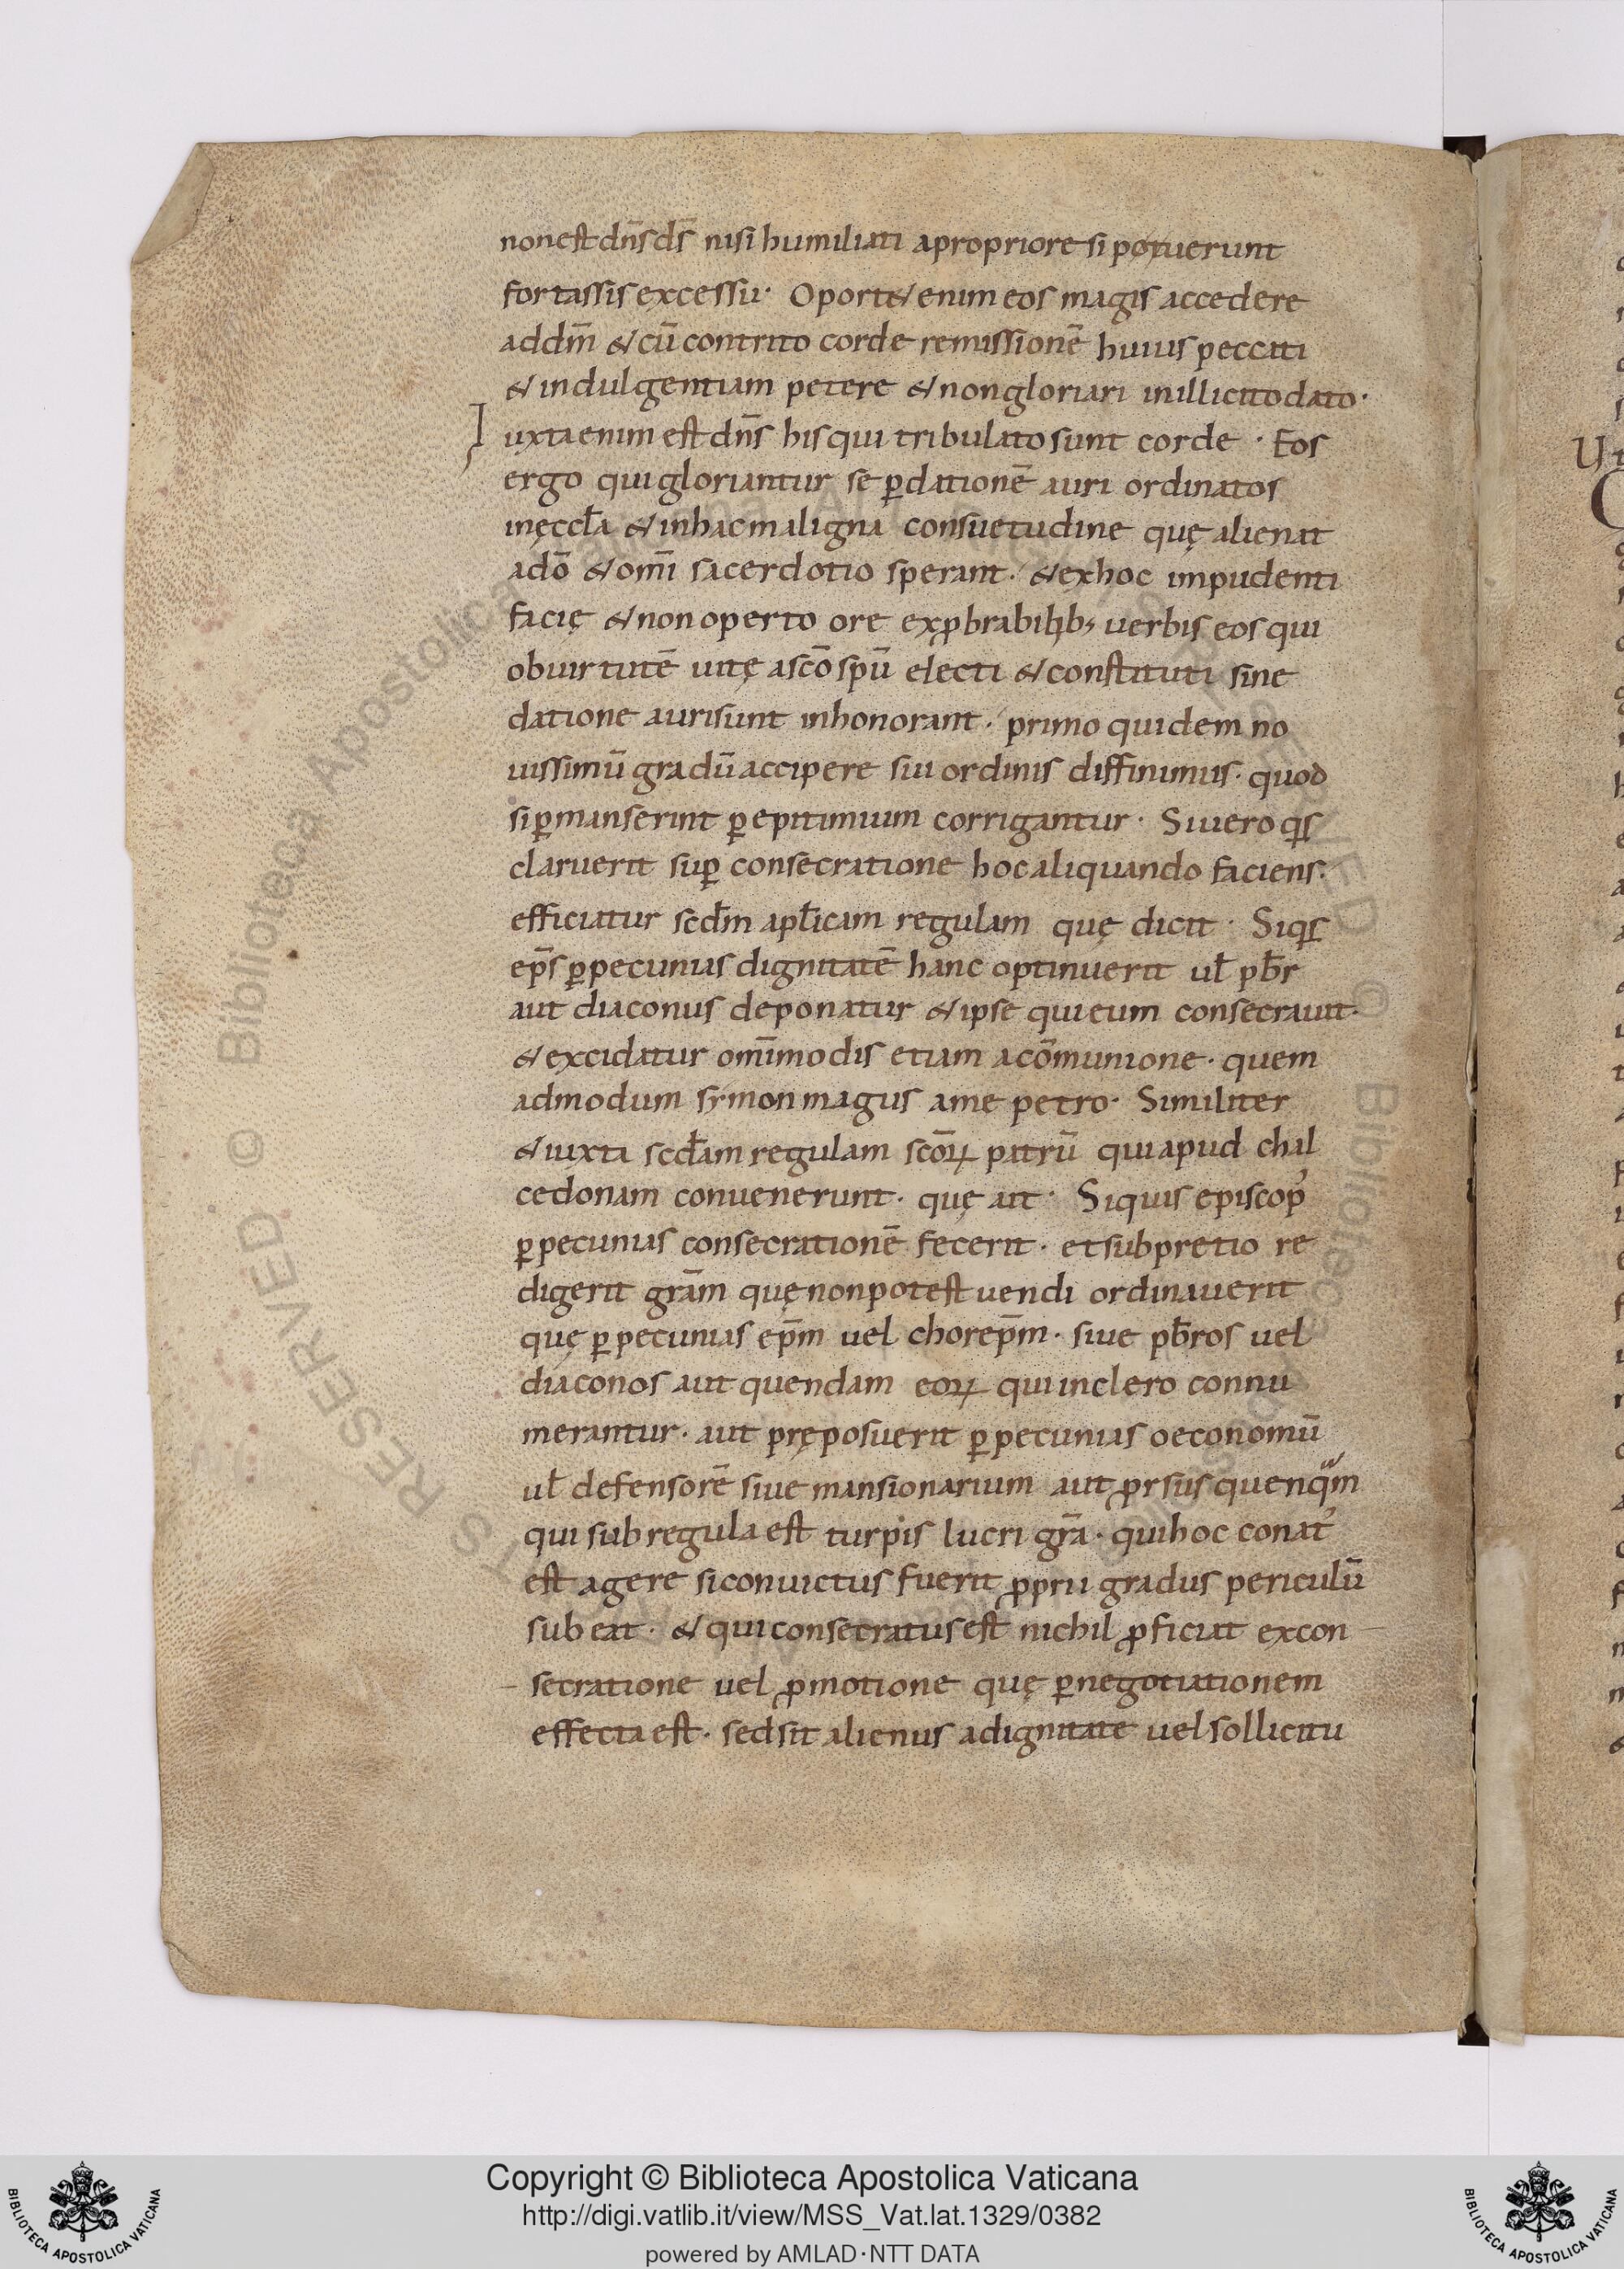 non est dn̄s ds̄ nisi humiliati a propriore si potuerunt
fortassis excessu· Oport& enim eos magis accedere
ad dm̄ & cū contrito corde remissionē huius peccati
& indulgentiam petere & non gloriari in illicito dato·
Iuxta enim est dn̄s his qui tribulato sunt corde · Eos
ergo qui gloriantur se ꝑ dationē auri ordinatos
in ęccl̄a & in hac maligna consuetudine quę alienat
a dō & om̄i sacerdotio sperant· & ex hoc impudenti
facię & non operto ore exꝓbrabilib; uerbis eos qui
ob uirtutē uitę a scō spū electi & constituti sine
datione auri sunt inhonorant· primo quidem no
uissimū gradū accipere sui ordinis diffinimus· quod
si ꝑmanserint ꝑ epitimium corrigantur· Si uero qis
claruerit suꝑ consecratione hoc aliquando faciens·
efficiatur scdm̄ apl̄icam regulam quę dicit· Siqis
ep̄s ꝑ pecunias dignitatē hanc optinuerit ul̄ pb̄r
aut diaconus deponatur & ipse qui eum consecrauit·
& excidatur om̄imodis etiam a cōmunione· quem
admodum symon magus a me petro· Similiter
& iuxta scd̄am regulam scōꝝ patrū qui apud chal
cedonam conuenerunt· quę ait· Siquis episcop᾽
ꝑ pecunias consecrationē fecerit· et sub pretio re
digerit grām quę non potest uendi ordinauerit
quę ꝑ pecunias ep̄m uel chorep̄m· siue pb̄ros uel
diaconos aut quendam eoꝝ qui in clero connu
merantur· aut pręposuerit ꝑ pecunias oeconomū
ul̄ defensorē siue mansionarium aut ꝓrsus quenqᵃm
qui sub regula est turpis lucri grā· qui hoc conat᾽
est agere si conuictus fuerit ꝓprii gradus periculū
subeat· & qui consecratus est nichil ꝓficiat ex con
secratione uel ꝓmotione quę ꝑ negotiationem
effecta est· sed sit alienus a dignitate uel sollicitu
Copyright © Biblioteca Apostolica Vaticana
http://digi.vatlib.it/view/MSS_Vat.lat.1329/0382
powered by AMLAD·NTT DATA
BIBLIOTECA APOSTOLICA VATICANA
BIBLIOTECA APOSTOLICA VATICANA